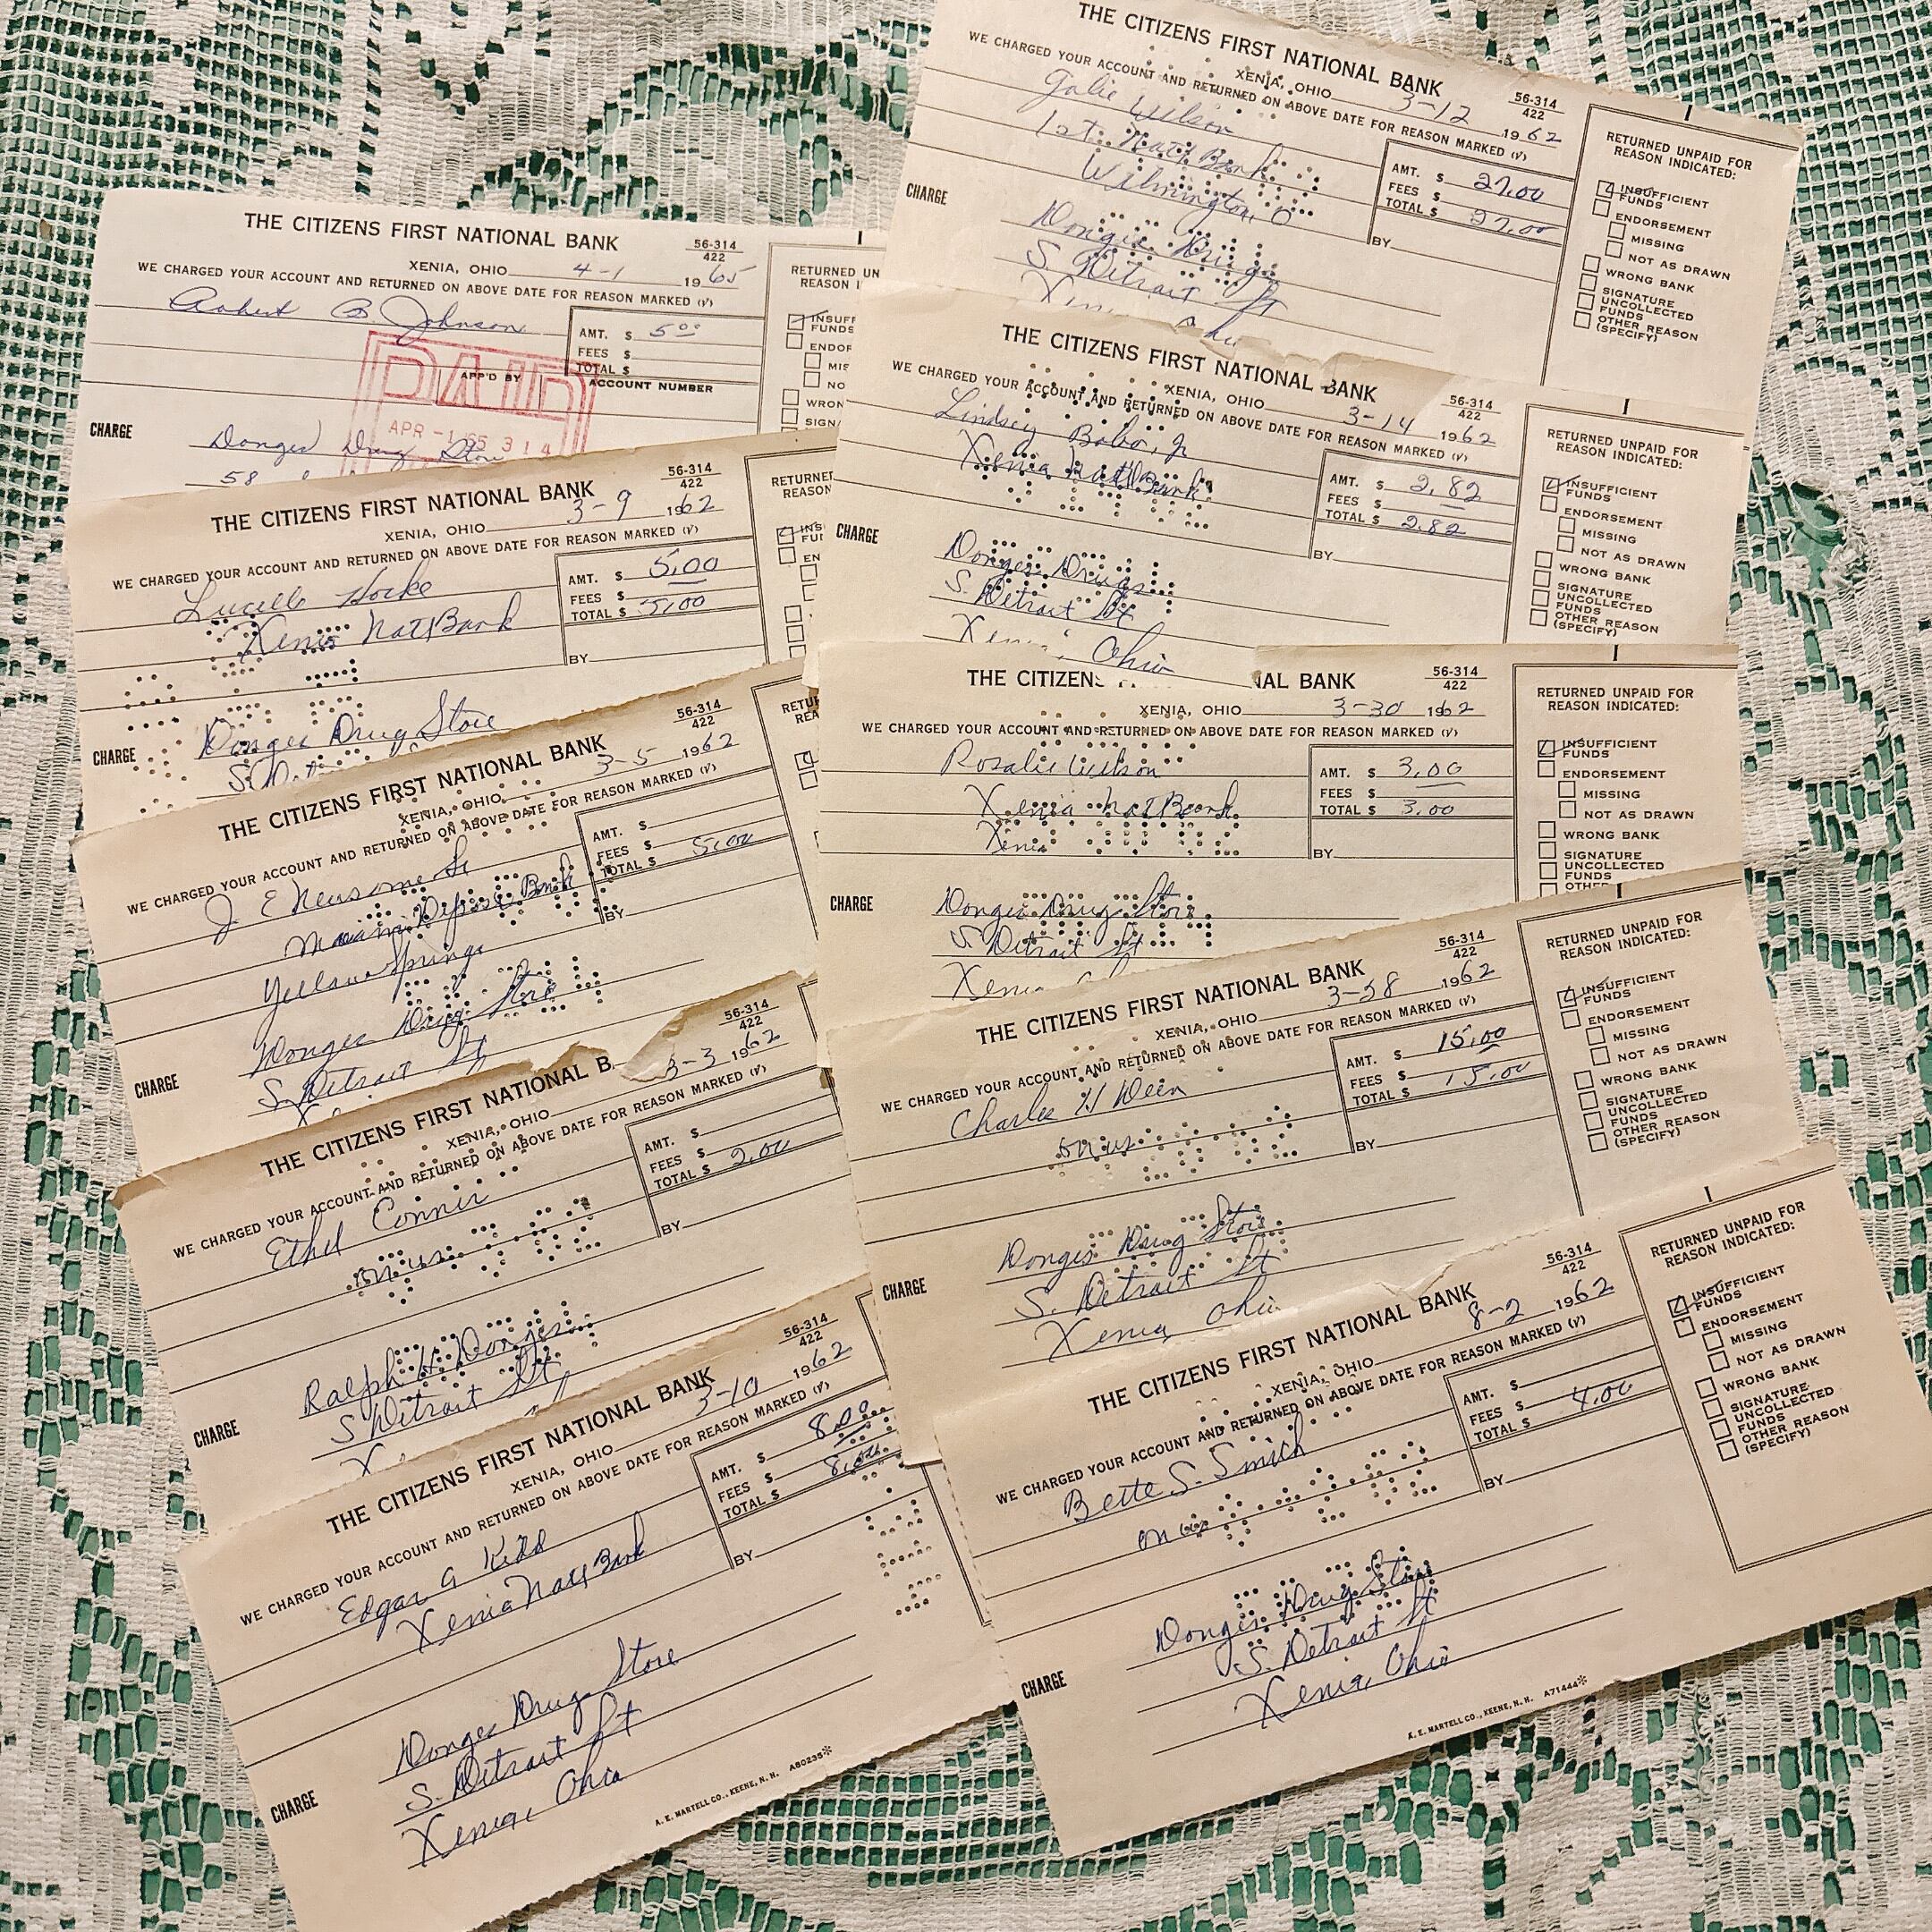 THE CITIZENS FIRST NATIONAL BANK
56-314
422
XENIA, OHIO 4-1 1965
WE CHARGED YOUR ACCOUNT AND RETURNED ON ABOVE DATE FOR REASON MARKED (√)
Robert B Johnson
AMT. $ 5.00
FEES $
TOTAL $
APP'D BY ACCOUNT NUMBER
PAID
APR -1 65 314
CHARGE
Donges Drug Store
58
RETURNED UN
REASON I
INSUFF
FUNDS
ENDOR
MIS
NO
WRON
SIGN
THE CITIZENS FIRST NATIONAL BANK
56-314
422
XENIA, OHIO 3-9 1962
WE CHARGED YOUR ACCOUNT AND RETURNED ON ABOVE DATE FOR REASON MARKED (√)
Lucille
Xenia Natl Bank
AMT. $ 5.00
FEES $
TOTAL $ 5.00
BY
CHARGE
Donges Drug Store
RETURNED
REASON
INS
FUI
EN
THE CITIZENS FIRST NATIONAL BANK
56-314
422
XENIA, OHIO 3-5 1962
WE CHARGED YOUR ACCOUNT AND RETURNED ON ABOVE DATE FOR REASON MARKED (√)
J E Newsome Sr
Miami Deposit Bank
Yellow Springs
AMT. $
FEES $
TOTAL $ 5.00
BY
CHARGE
Donges Drug Store
S. Detroit St
RETU
REA
THE CITIZENS FIRST NATIONAL B
56-314
422
XENIA, OHIO 3-3 1962
WE CHARGED YOUR ACCOUNT AND RETURNED ON ABOVE DATE FOR REASON MARKED (√)
Ethel Conner
on us
AMT. $
FEES $
TOTAL $ 2.00
BY
CHARGE
Ralph H. Donges
S Detroit St
THE CITIZENS FIRST NATIONAL BANK
56-314
422
XENIA, OHIO 3-10 1962
WE CHARGED YOUR ACCOUNT AND RETURNED ON ABOVE DATE FOR REASON MARKED (√)
Edgar G Kidd
Xenia Natl Bank
AMT. $ 8.00
FEES $
TOTAL $ 8.00
BY
CHARGE
Donges Drug Store
S. Detroit St
Xenia, Ohio
A. E. MARTELL CO., KEENE, N. H. A80235*
THE CITIZENS FIRST NATIONAL BANK
56-314
422
XENIA, OHIO 3-12 1962
WE CHARGED YOUR ACCOUNT AND RETURNED ON ABOVE DATE FOR REASON MARKED (√)
Wilson
1st Natl Bank
Wilmington, O
AMT. $ 27.00
FEES $
TOTAL $ 27.00
BY
CHARGE
Donges Drugs
S. Detroit St
RETURNED UNPAID FOR
REASON INDICATED:
INSUFFICIENT
FUNDS
ENDORSEMENT
MISSING
NOT AS DRAWN
WRONG BANK
SIGNATURE
UNCOLLECTED
FUNDS
OTHER REASON
(SPECIFY)
THE CITIZENS FIRST NATIONAL BANK
56-314
422
XENIA, OHIO 3-14 1962
WE CHARGED YOUR ACCOUNT AND RETURNED ON ABOVE DATE FOR REASON MARKED (√)
Lindsey Bobo, Jr
Xenia Natl Bank
AMT. $ 2.82
FEES $
TOTAL $ 2.82
BY
CHARGE
Donges Drugs
S. Detroit St
Xenia, Ohio
RETURNED UNPAID FOR
REASON INDICATED:
INSUFFICIENT
FUNDS
ENDORSEMENT
MISSING
NOT AS DRAWN
WRONG BANK
SIGNATURE
UNCOLLECTED
FUNDS
OTHER REASON
(SPECIFY)
THE CITIZENS NAL BANK
56-314
422
XENIA, OHIO 3-30 1962
WE CHARGED YOUR ACCOUNT AND RETURNED ON ABOVE DATE FOR REASON MARKED (√)
Rosalie Wilson
Xenia Natl Bank
Xenia
AMT. $ 3.00
FEES $
TOTAL $ 3.00
BY
CHARGE
Donges Drug Store
S. Detroit St
Xenia
RETURNED UNPAID FOR
REASON INDICATED:
INSUFFICIENT
FUNDS
ENDORSEMENT
MISSING
NOT AS DRAWN
WRONG BANK
SIGNATURE
UNCOLLECTED
FUNDS
THE CITIZENS FIRST NATIONAL BANK
56-314
422
XENIA, OHIO 3-58 1962
WE CHARGED YOUR ACCOUNT AND RETURNED ON ABOVE DATE FOR REASON MARKED (√)
Charles H Deen
on us
AMT. $ 15.00
FEES $
TOTAL $ 15.00
BY
CHARGE
Donges Drug Store
S. Detroit St
Xenia, Ohio
RETURNED UNPAID FOR
REASON INDICATED:
INSUFFICIENT
FUNDS
ENDORSEMENT
MISSING
NOT AS DRAWN
WRONG BANK
SIGNATURE
UNCOLLECTED
FUNDS
OTHER REASON
(SPECIFY)
THE CITIZENS FIRST NATIONAL BANK
56-314
422
XENIA, OHIO 8-2 1962
WE CHARGED YOUR ACCOUNT AND RETURNED ON ABOVE DATE FOR REASON MARKED (√)
Bette S. Smith
on us
AMT. $
FEES $
TOTAL $ 4.00
BY
CHARGE
Donges Drug Store
S. Detroit St
Xenia, Ohio
A. E. MARTELL CO., KEENE, N. H. A71444*
RETURNED UNPAID FOR
REASON INDICATED:
INSUFFICIENT
FUNDS
ENDORSEMENT
MISSING
NOT AS DRAWN
WRONG BANK
SIGNATURE
UNCOLLECTED
FUNDS
OTHER REASON
(SPECIFY)